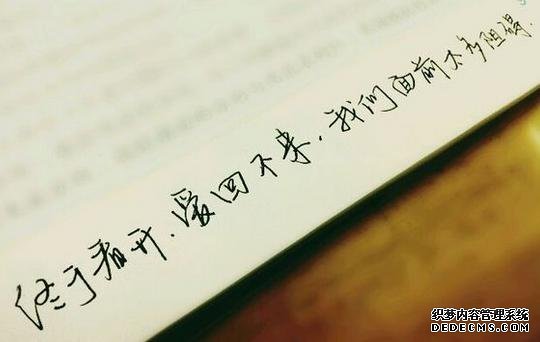 终于看开.爱回不来.我们面前太多阻碍.
织梦内容管理系统
DEDECMS.COM